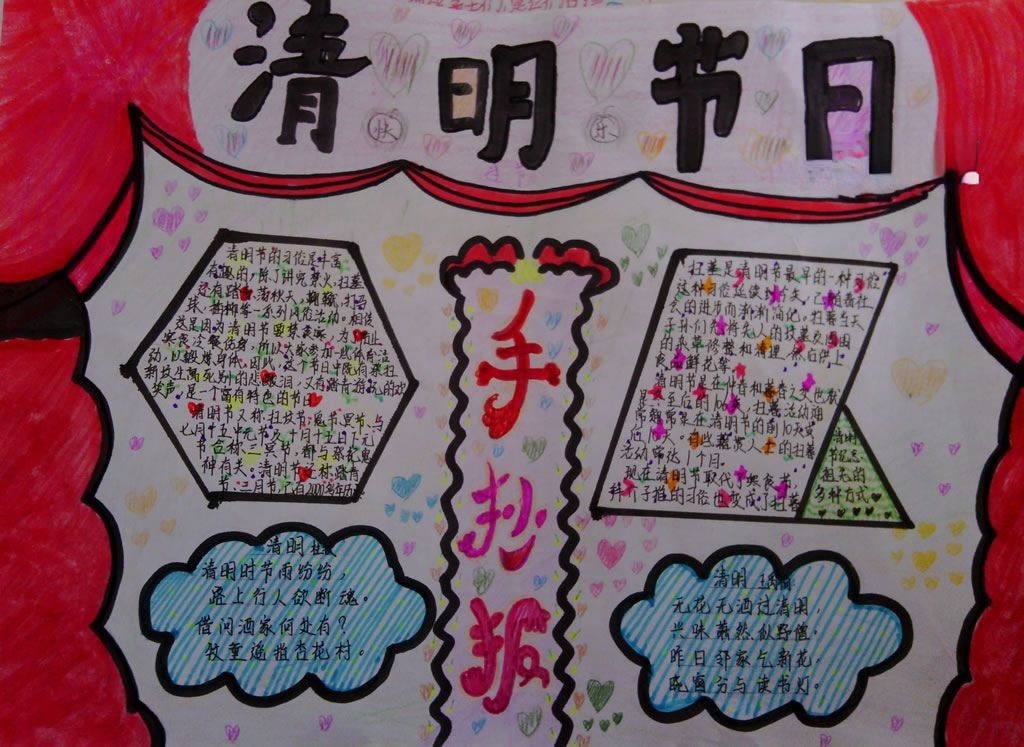 清明节日
快 乐
手抄报
清明节的习俗是丰富
有趣的，除了讲究禁火、扫墓
还有踏青、荡秋千、蹴鞠、打马
球、插柳等一系列风俗活动。相传
这是因为清明节要禁食寒，为了防止
寒食冷餐伤身，所以大家参加一些体育活
动，以锻炼身体。因此，这个节日中既有祭扫
新坟生离死别的悲酸泪，又有踏青游玩的欢
笑声，是一个富有特色的节日
清明节又称扫坟节、鬼节、冥节，与
七月十五中元节及十月十五日下元
节合称三冥节，都与祭祀鬼
神有关。清明节又称踏青
节、三月节，已有2000多年历
扫墓是清明节最早的一种习俗
这种习俗延续到今天，已随着社
会的进步而渐渐简化。扫墓当天
子孙们先将先人的坟墓及周围
的杂草修整和清理，然后供上
食品鲜花等。
清明节是在仲春和暮春之交也就
是冬至后的108天，扫墓活动通
常就常是在清明节的前10天或
后10天。有些籍贯人士的扫墓
活动常达1个月。
现在清明节取代了寒食节，
拜介子推的习俗也变成了扫墓
清明
节纪念
祖先的
多种方式
清明 杜牧
清明时节雨纷纷，
路上行人欲断魂。
借问酒家何处有？
牧童遥指杏花村。
清明 王禹偁
无花无酒过清明，
兴味萧然似野僧。
昨日邻家乞新火，
晓窗分与读书灯。